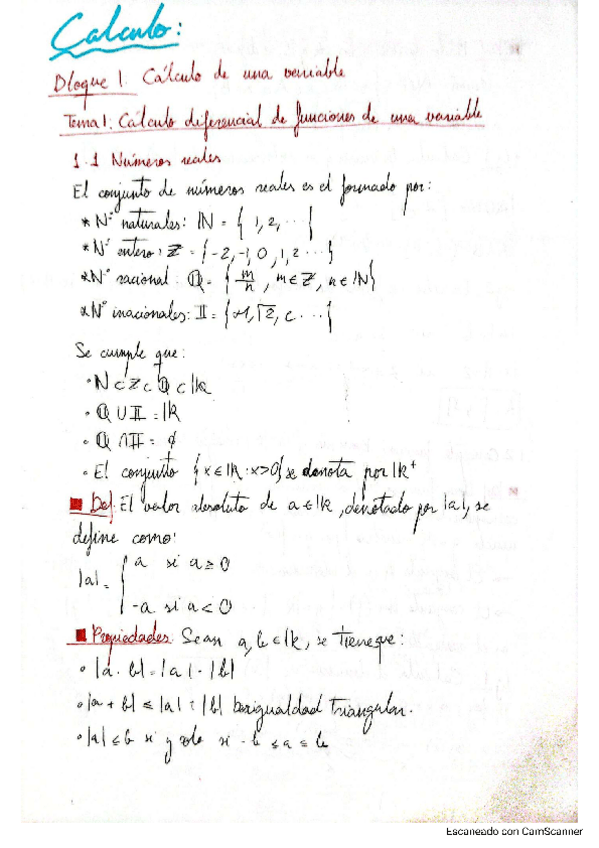 Calculo:
Bloque 1. Cálculo de una variable
Tema 1. Cálculo diferencial de funciones de una variable
1.1 Números reales
El conjunto de números reales es el formado por:
* Nº naturales: ℕ = { 1, 2, ... }
* Nº entero: ℤ = {-2, -1, 0, 1, 2 ... }
* Nº racional: ℚ = { m/n , m ∈ ℤ, n ∈ ℕ }
* Nº irracionales: 𝕀 = { √2, e ... }
Se cumple que:
• ℕ ⊂ ℤ ⊂ ℚ ⊂ ℝ
• ℚ ∪ 𝕀 = ℝ
• ℚ ∩ 𝕀 = ∅
• El conjunto { x ∈ ℝ : x > 0 } se denota por ℝ⁺
Def: El valor absoluto de a ∈ ℝ, denotado por |a|, se
define como:
|a| = { a si a ≥ 0
-a si a < 0
Propiedades: Sean a, b ∈ ℝ, se tiene que:
• |a · b| = |a| · |b|
• |a + b| ≤ |a| + |b| Desigualdad triangular.
• |a| ≤ b si y solo si -b ≤ a ≤ b
Escaneado con CamScanner